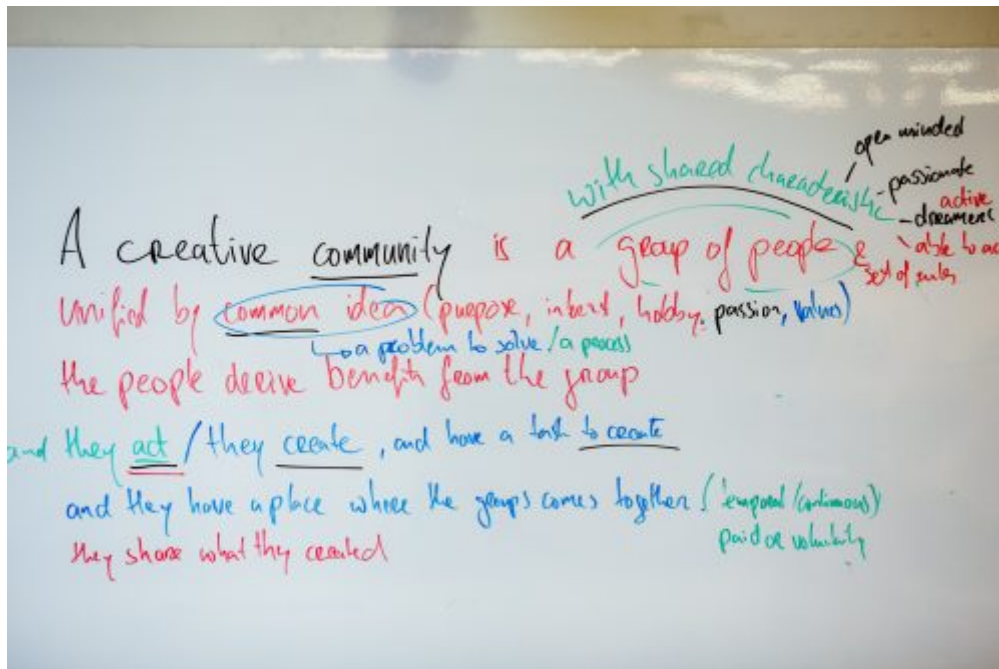 open minded
with shared characteristic - passionate
active
- dreamers
able to ac
A creative community is a group of people &
set of rules
unified by common idea (purpose, interest, hobby, passion, values)
a problem to solve / a process
the people derive benefit from the group
and they act / they create, and have a task to create
and they have a place where the groups comes together (temporal / continuous)
paid or voluntarily
they share what they created